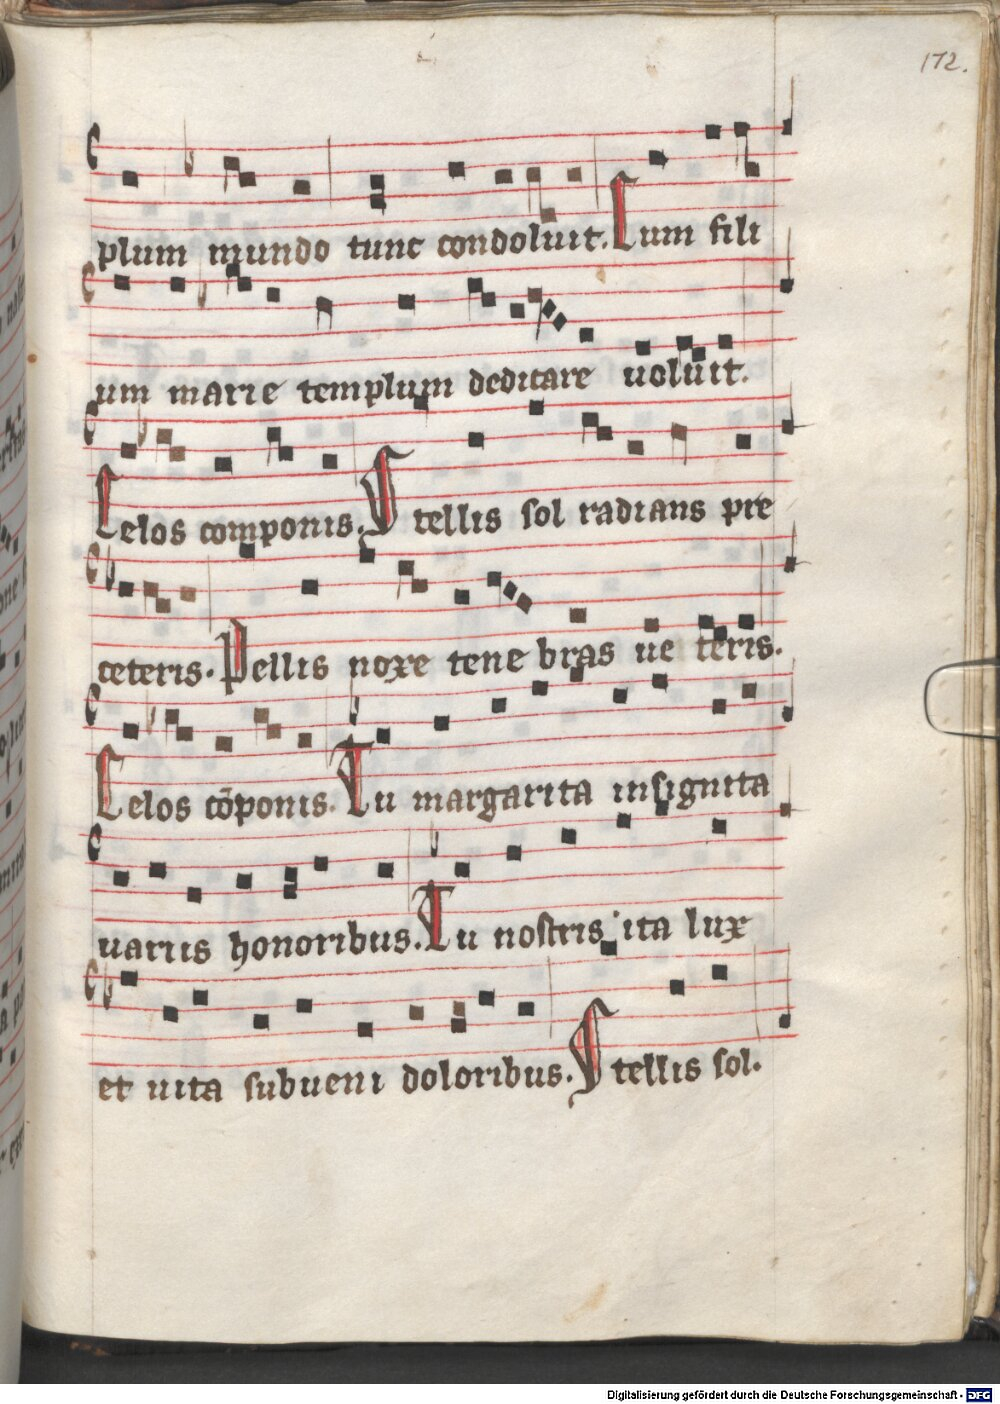 172.
plum mundo tunc condoluit. Cum fili
um marie templum dedicare uoluit.
Celos componis. Stellis sol radians pre
ceteris. Pellis noxe tene bras ue teris.
Celos cōponis. Tu margarita insignita
uariis honoribus. Tu nostris ita lux
et uita subueni doloribus. Stellis sol.
Digitalisierung gefördert durch die Deutsche Forschungsgemeinschaft - DFG